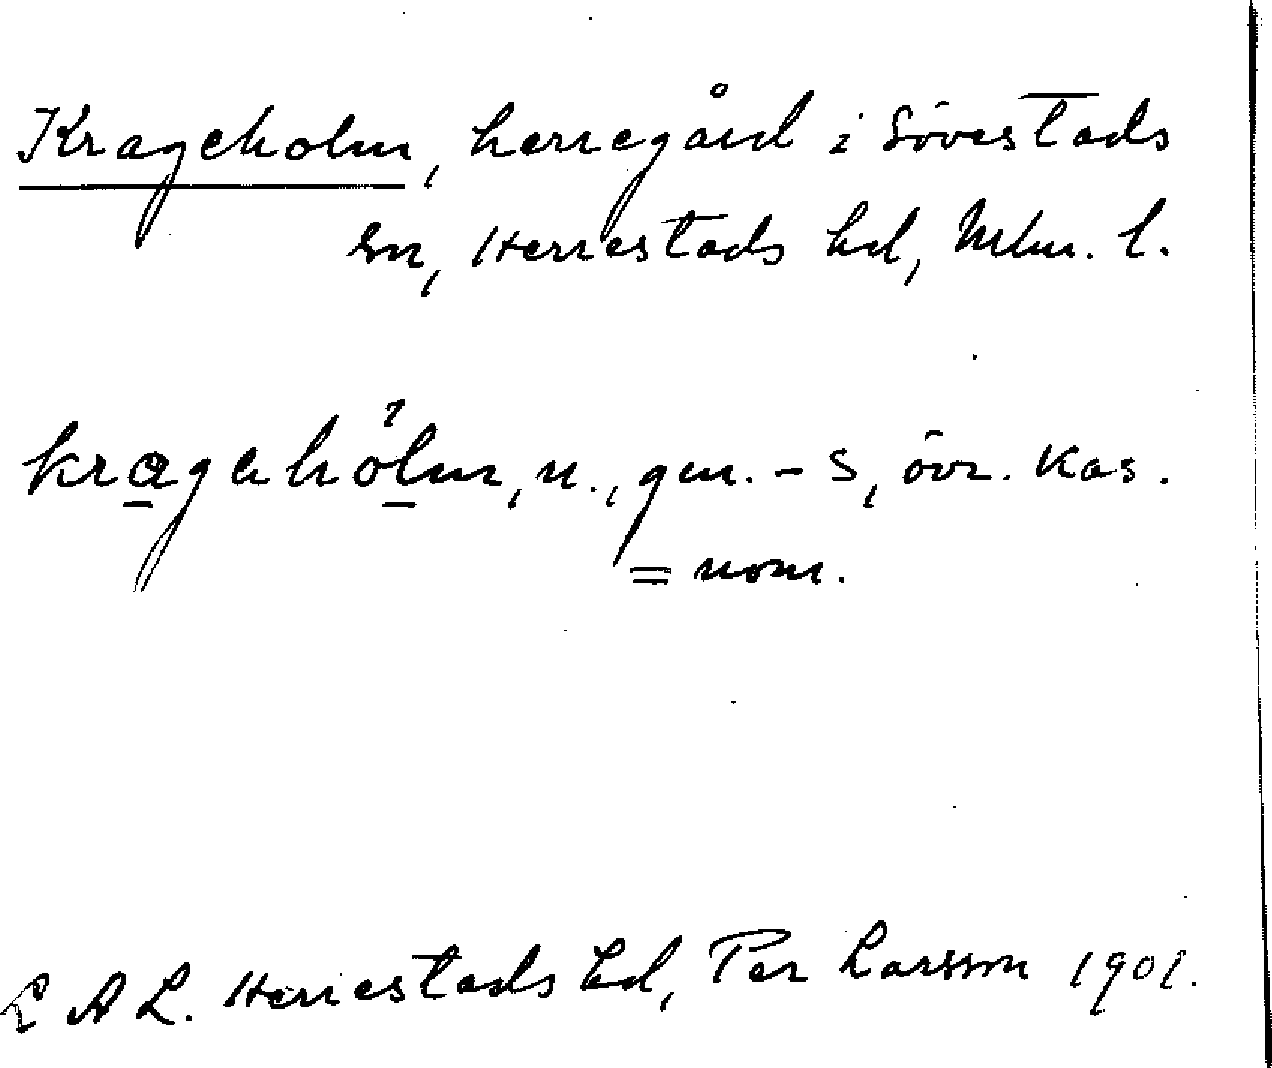 Krageholm, herregård i Sövestads
sn, Herrestads hd, Mlm. l.
kragahölm, n., gen. - s, övr. kas.
= nom.
L A L. Herrestads hd, Per Larsson 1901.